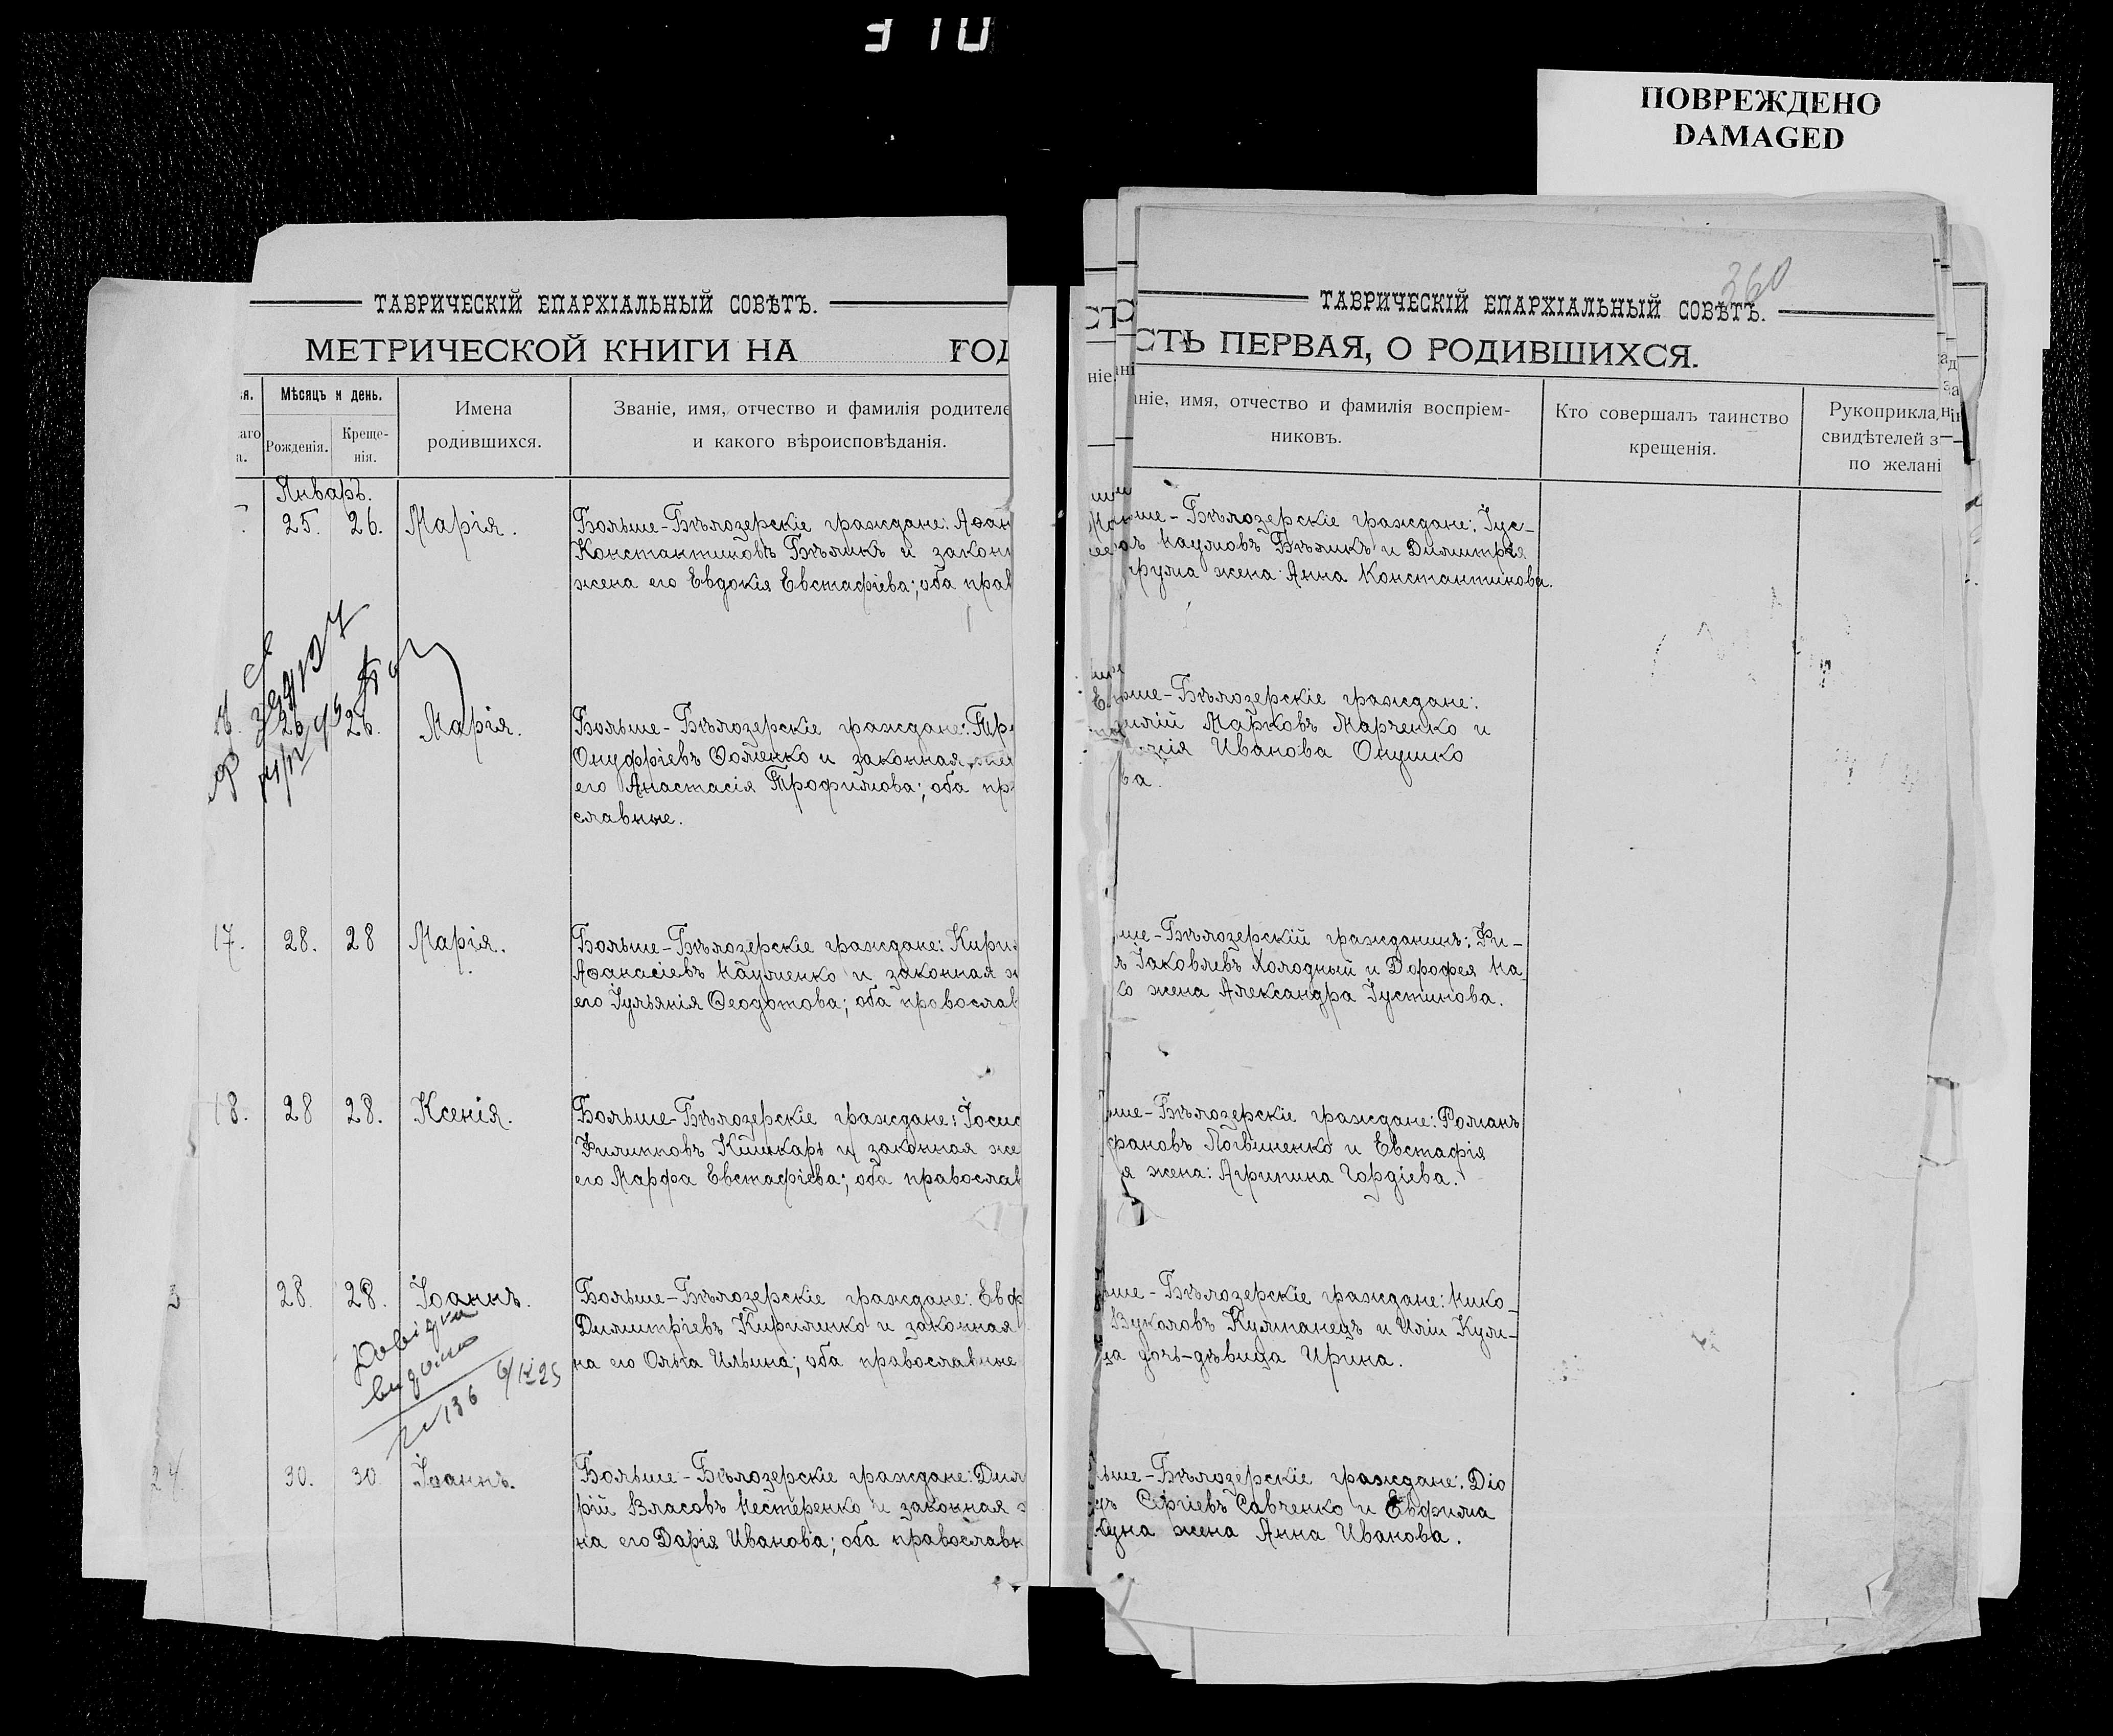 310
ПОВРЕЖДЕНО
DAMAGED
ТАВРИЧЕСКІЙ ЕПАРХІАЛЬНЫЙ СОВѢТЪ.
МЕТРИЧЕСКОЙ КНИГИ НА ГОД
Мѣсяцъ и день.
Рожденія.
Креще-
нія.
Имена
родившихся.
Званіе, имя, отчество и фамилія родителе
и какого вѣроисповѣданія.
Январь.
25. 26. Марія.
Больше-Бѣлозерскіе граждане: Аѳан
Константиновъ Бѣликъ и закон
жена его Евдокія Евстафіева; оба прав
26. 26. Марія.
Больше-Бѣлозерскіе граждане: Тр
Онуфріевъ Ѳоменко и законная
его Анастасія Трофимова; оба пр
славные.
17. 28. 28 Марія.
Больше-Бѣлозерскіе граждане: Кири
Аѳанасіевъ Науменко и законная
его Іульянія Ѳеодотова; оба православ
18. 28 28. Ксенія.
Больше-Бѣлозерскіе граждане: Іоси
Филипповъ Кишкарь и законная же
его Марфа Евстафіева; оба православ
28. 28. Іоаннъ.
Больше-Бѣлозерскіе граждане: Евф
Димитріевъ Кириленко и законная
на его Ольга Ильина; оба православные
Довідка
видана
№ 136
30. 30 Іоаннъ.
Больше-Бѣлозерскіе граждане: Дим
рій Власовъ Нестеренко и законная
на его Дарія Иванова; оба православн
360
ТАВРИЧЕСКІЙ ЕПАРХІАЛЬНЫЙ СОВѢТЪ.
СТЬ ПЕРВАЯ, О РОДИВШИХСЯ.
ніе, имя, отчество и фамилія воспріем-
никовъ.
Кто совершалъ таинство
крещенія.
Рукоприкла
свидѣтелей з
по желані
ше-Бѣлозерскіе граждане: Іус-
Наумовъ Бѣликъ и Димитрія
жена Анна Константинова.
ше-Бѣлозерскіе граждане:
Марковъ Марченко и
Иванова Онушко
ва.
ше-Бѣлозерскій гражданинъ: Фи-
Іаковлевъ Холодный и Дорофея На
ко жена Александра Іустинова.
ше-Бѣлозерскіе граждане: Романъ
Логвиненко и Евстафія
я жена: Агрипина Гордіева.
ше-Бѣлозерскіе граждане: Нико-
Вуколовъ Кулпанецъ и Иліи Кули-
ца дочь-дѣвица Ирина.
ьше-Бѣлозерскіе граждане: Діо
Сергіевъ Савченко и Евфима
жена Анна Иванова.